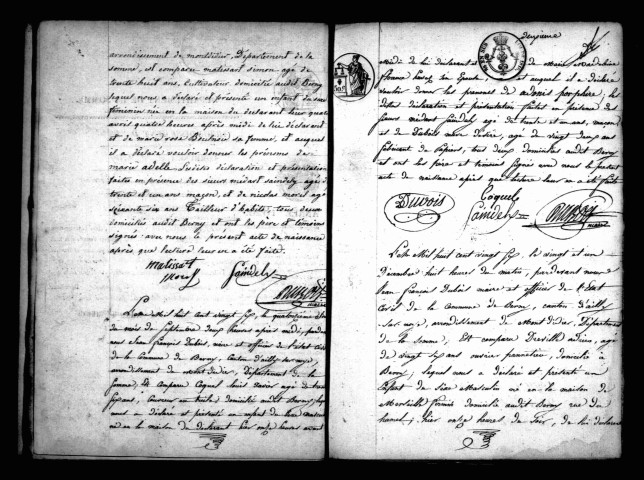 arrondissement de montdidier, Département de la
somme, est comparu matissart simon agé de
trente huit ans, Cultivateur domicilié audit Berny
lequel nous a déclaré et présenté un enfant du sexe
féminin né en la maison du déclarant hier quatre
quatre heures après midi de lui déclarant
et de marie rose Bentrice sa femme, et auquel
il a déclaré vouloir donner les prénoms de
marie adelle. Lesdites déclaration et présentation
faites en présence des sieurs médart saindely agé
trente et un ans maçon, et de nicolas morel agé
soixante six ans Tailleur d'habits, tous deux
domiciliés audit Berny et ont les père et témoins
signés avec nous le présent acte de naissance
après que lecture leur en a été faite.
matissart
morel Saindely
Dubois
maire
L'an Mil huit cent vingt six, le quatorzième
du mois de septembre deux heures après midi, par devant
nous Jean françois Dubois, maire et officier de l'état civil
de la Commune de Berny, Canton d'ailly sur noye,
arrondissement de Montdidier, Département de la
Somme, Est comparu Coquel Louis Xavier agé de trente
six ans, domicilié audit Berny, lequel
nous a déclaré et présenté un enfant du sexe
né en la maison du déclarant hier onze heures avant
Deuxième
midi de lui déclarant et de Marie
femme et auquel il a déclaré
vouloir donner les prénoms de porphire, les
dites déclaration et présentation faites en présence des
sieurs médart saindely agé de trente et un ans, maçon
et de Dubois agé de vingt deux ans
fabricant de papiers, tous deux domiciliés audit Berny
et ont les père et témoins signés avec nous le présent
acte de naissance après que lecture leur en a été faite
Duvois Coquel
Saindely
Dubois
maire
L'an Mil huit cent vingt six, le vingt et un
Décembre huit heures du matin, par devant nous
Jean François Dubois maire et officier de l'état
Civil de la Commune de Berny, canton d'ailly
sur noye, arrondissement de Montdidier, Département
de la somme, Est comparu Deville adrien, agé
de vingt six ans ouvrier papetier, domicilié à
Berny; lequel nous a déclaré et présenté un
Enfant du sexe Masculin né en la maison de
domicilié audit Berny rue du
hier onze heures du soir, de lui déclarant